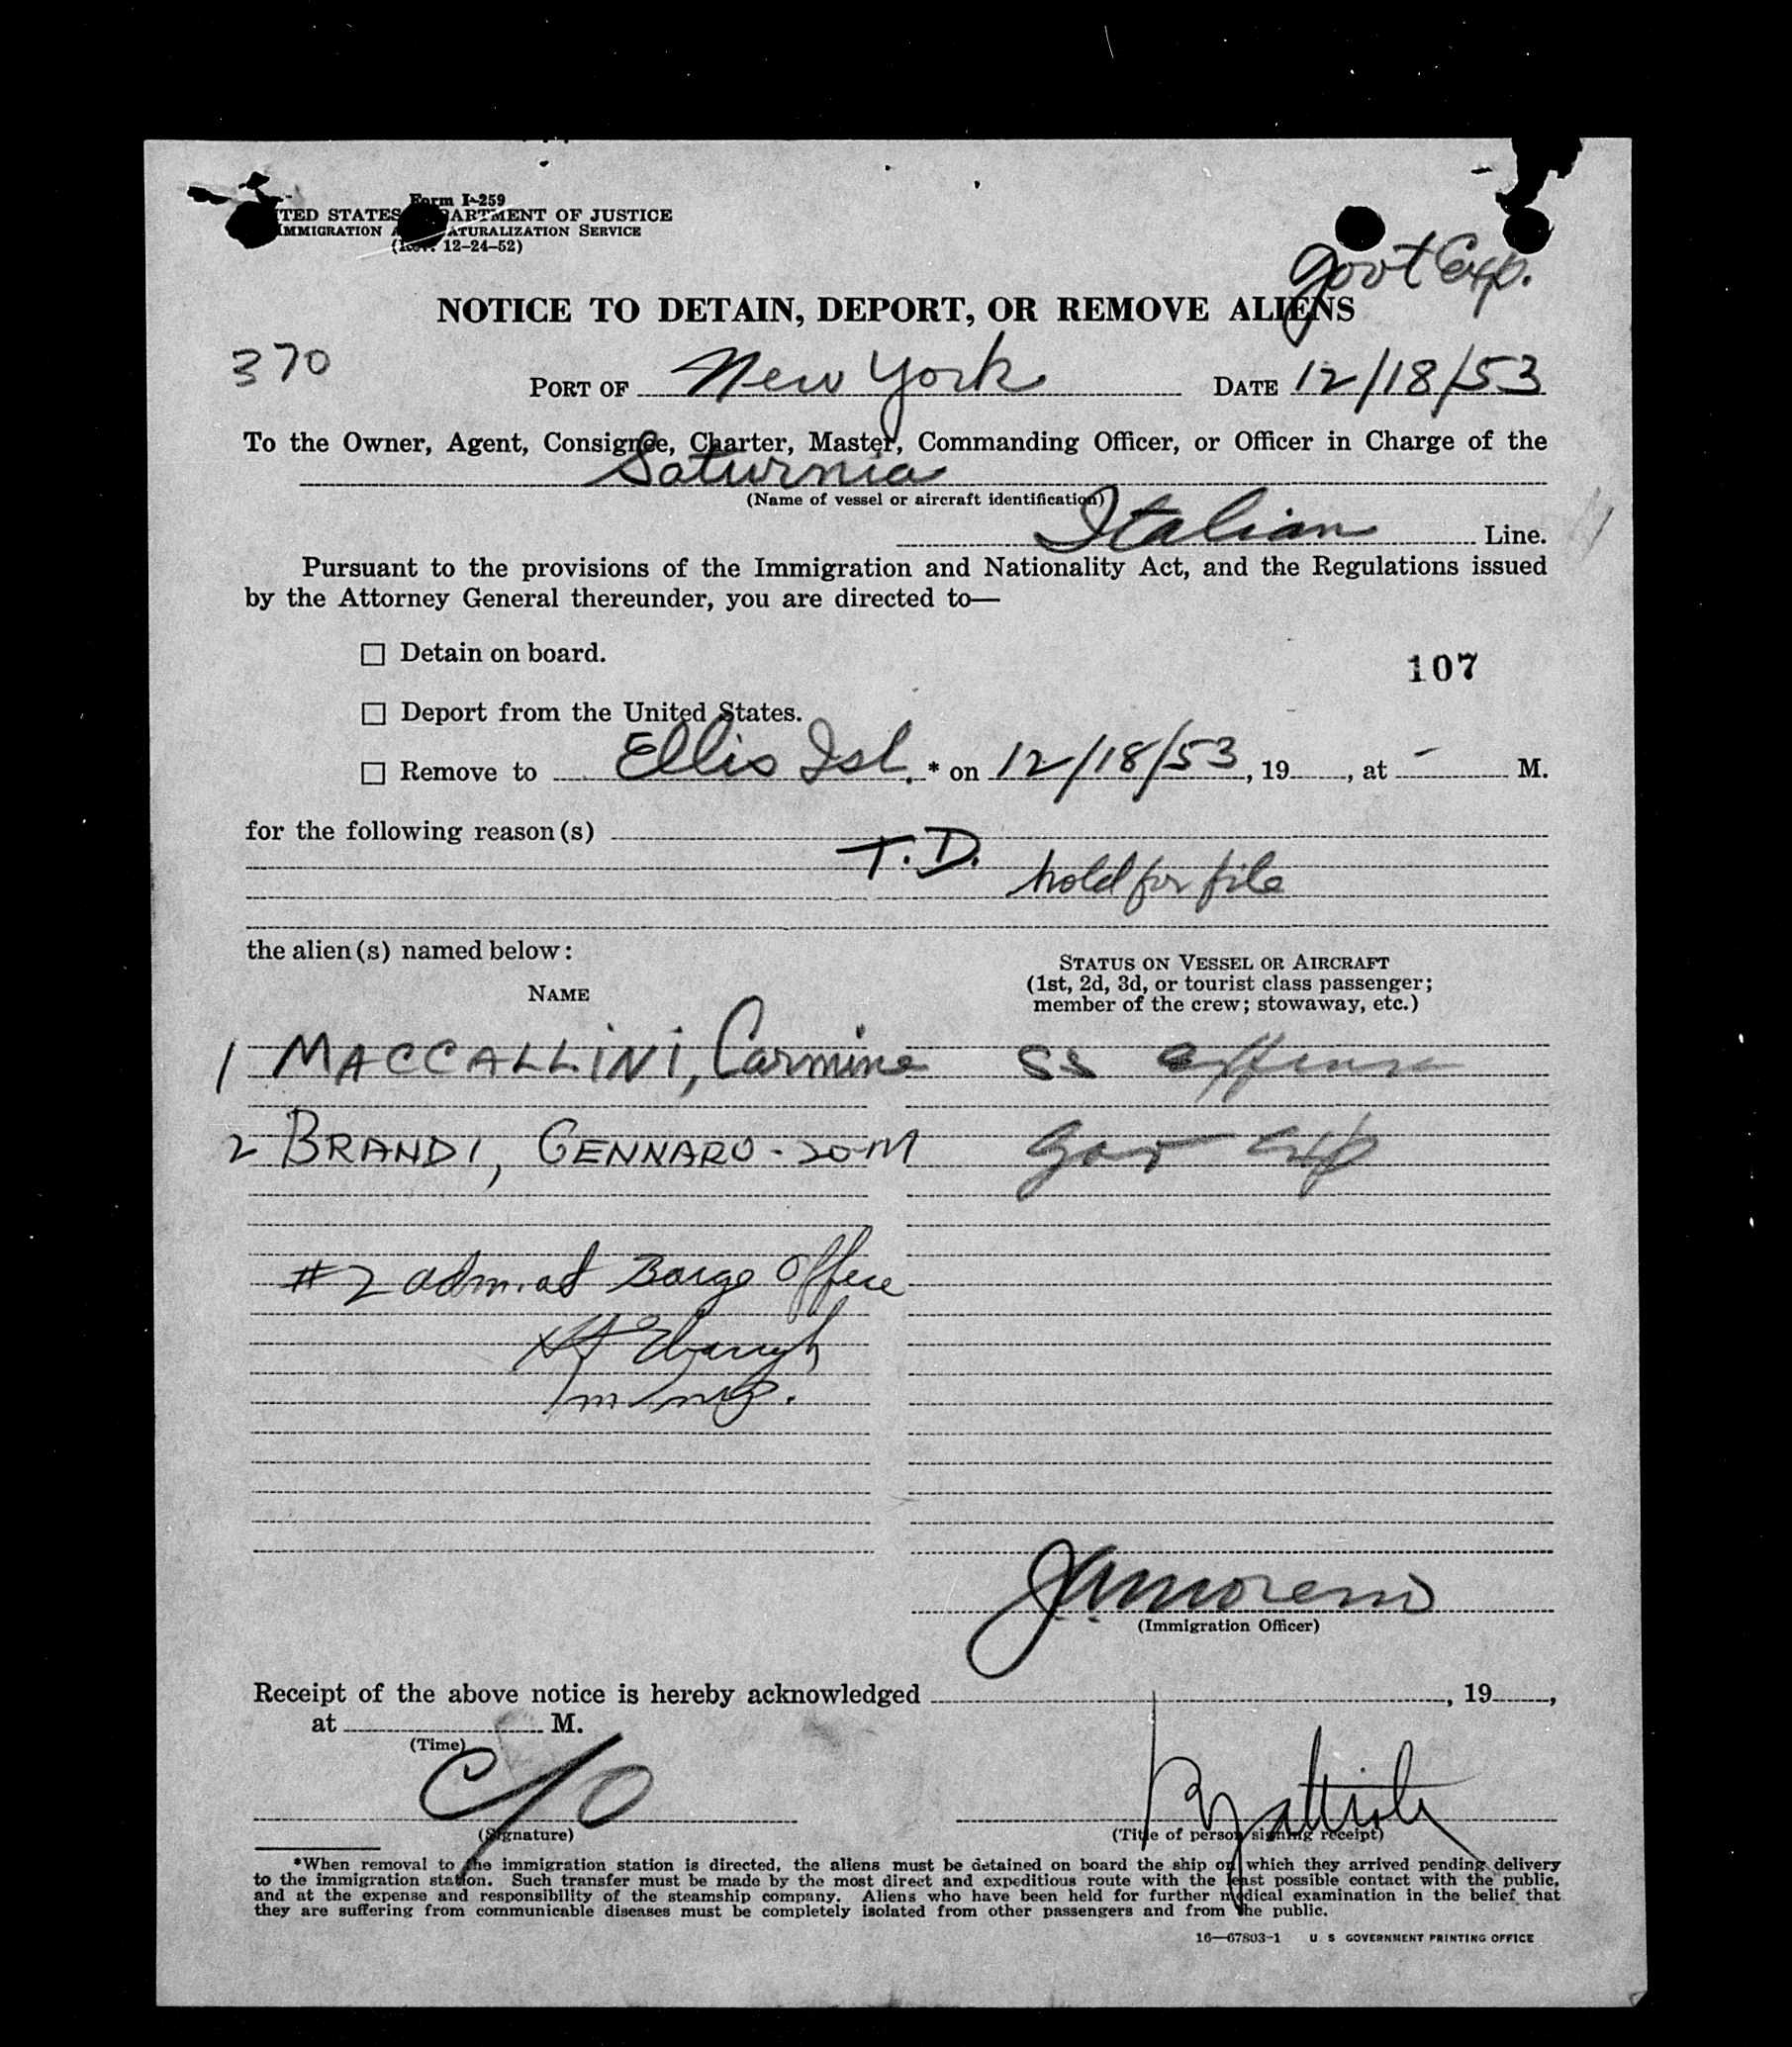 Form I-259
UNITED STATES DEPARTMENT OF JUSTICE
IMMIGRATION AND NATURALIZATION SERVICE
(Rev. 12-24-52)
Govt Exp.
NOTICE TO DETAIN, DEPORT, OR REMOVE ALIENS
370
PORT OF New York DATE 12/18/53
To the Owner, Agent, Consignee, Charter, Master, Commanding Officer, or Officer in Charge of the
Saturnia
(Name of vessel or aircraft identification)
Italian Line.
Pursuant to the provisions of the Immigration and Nationality Act, and the Regulations issued
by the Attorney General thereunder, you are directed to—
Detain on board.
107
Deport from the United States.
Remove to Ellis Isl. * on 12/18/53, 19, at - M.
for the following reason(s)
T.D.
hold for file
the alien(s) named below:
STATUS ON VESSEL OR AIRCRAFT
(1st, 2d, 3d, or tourist class passenger;
member of the crew; stowaway, etc.)
NAME
1 MACCALLINI, Carmine SS
2 BRANDI, GENNARO - 20-M Gov Exp
#2 adm. at Barge Office
J.A. Moreno
(Immigration Officer)
Receipt of the above notice is hereby acknowledged , 19 ,
at M.
(Time)
(Signature)
(Title of person signing receipt)
*When removal to the immigration station is directed, the aliens must be detained on board the ship on which they arrived pending delivery
to the immigration station. Such transfer must be made by the most direct and expeditious route with the least possible contact with the public,
and at the expense and responsibility of the steamship company. Aliens who have been held for further medical examination in the belief that
they are suffering from communicable diseases must be completely isolated from other passengers and from the public.
16—67803-1 U S GOVERNMENT PRINTING OFFICE